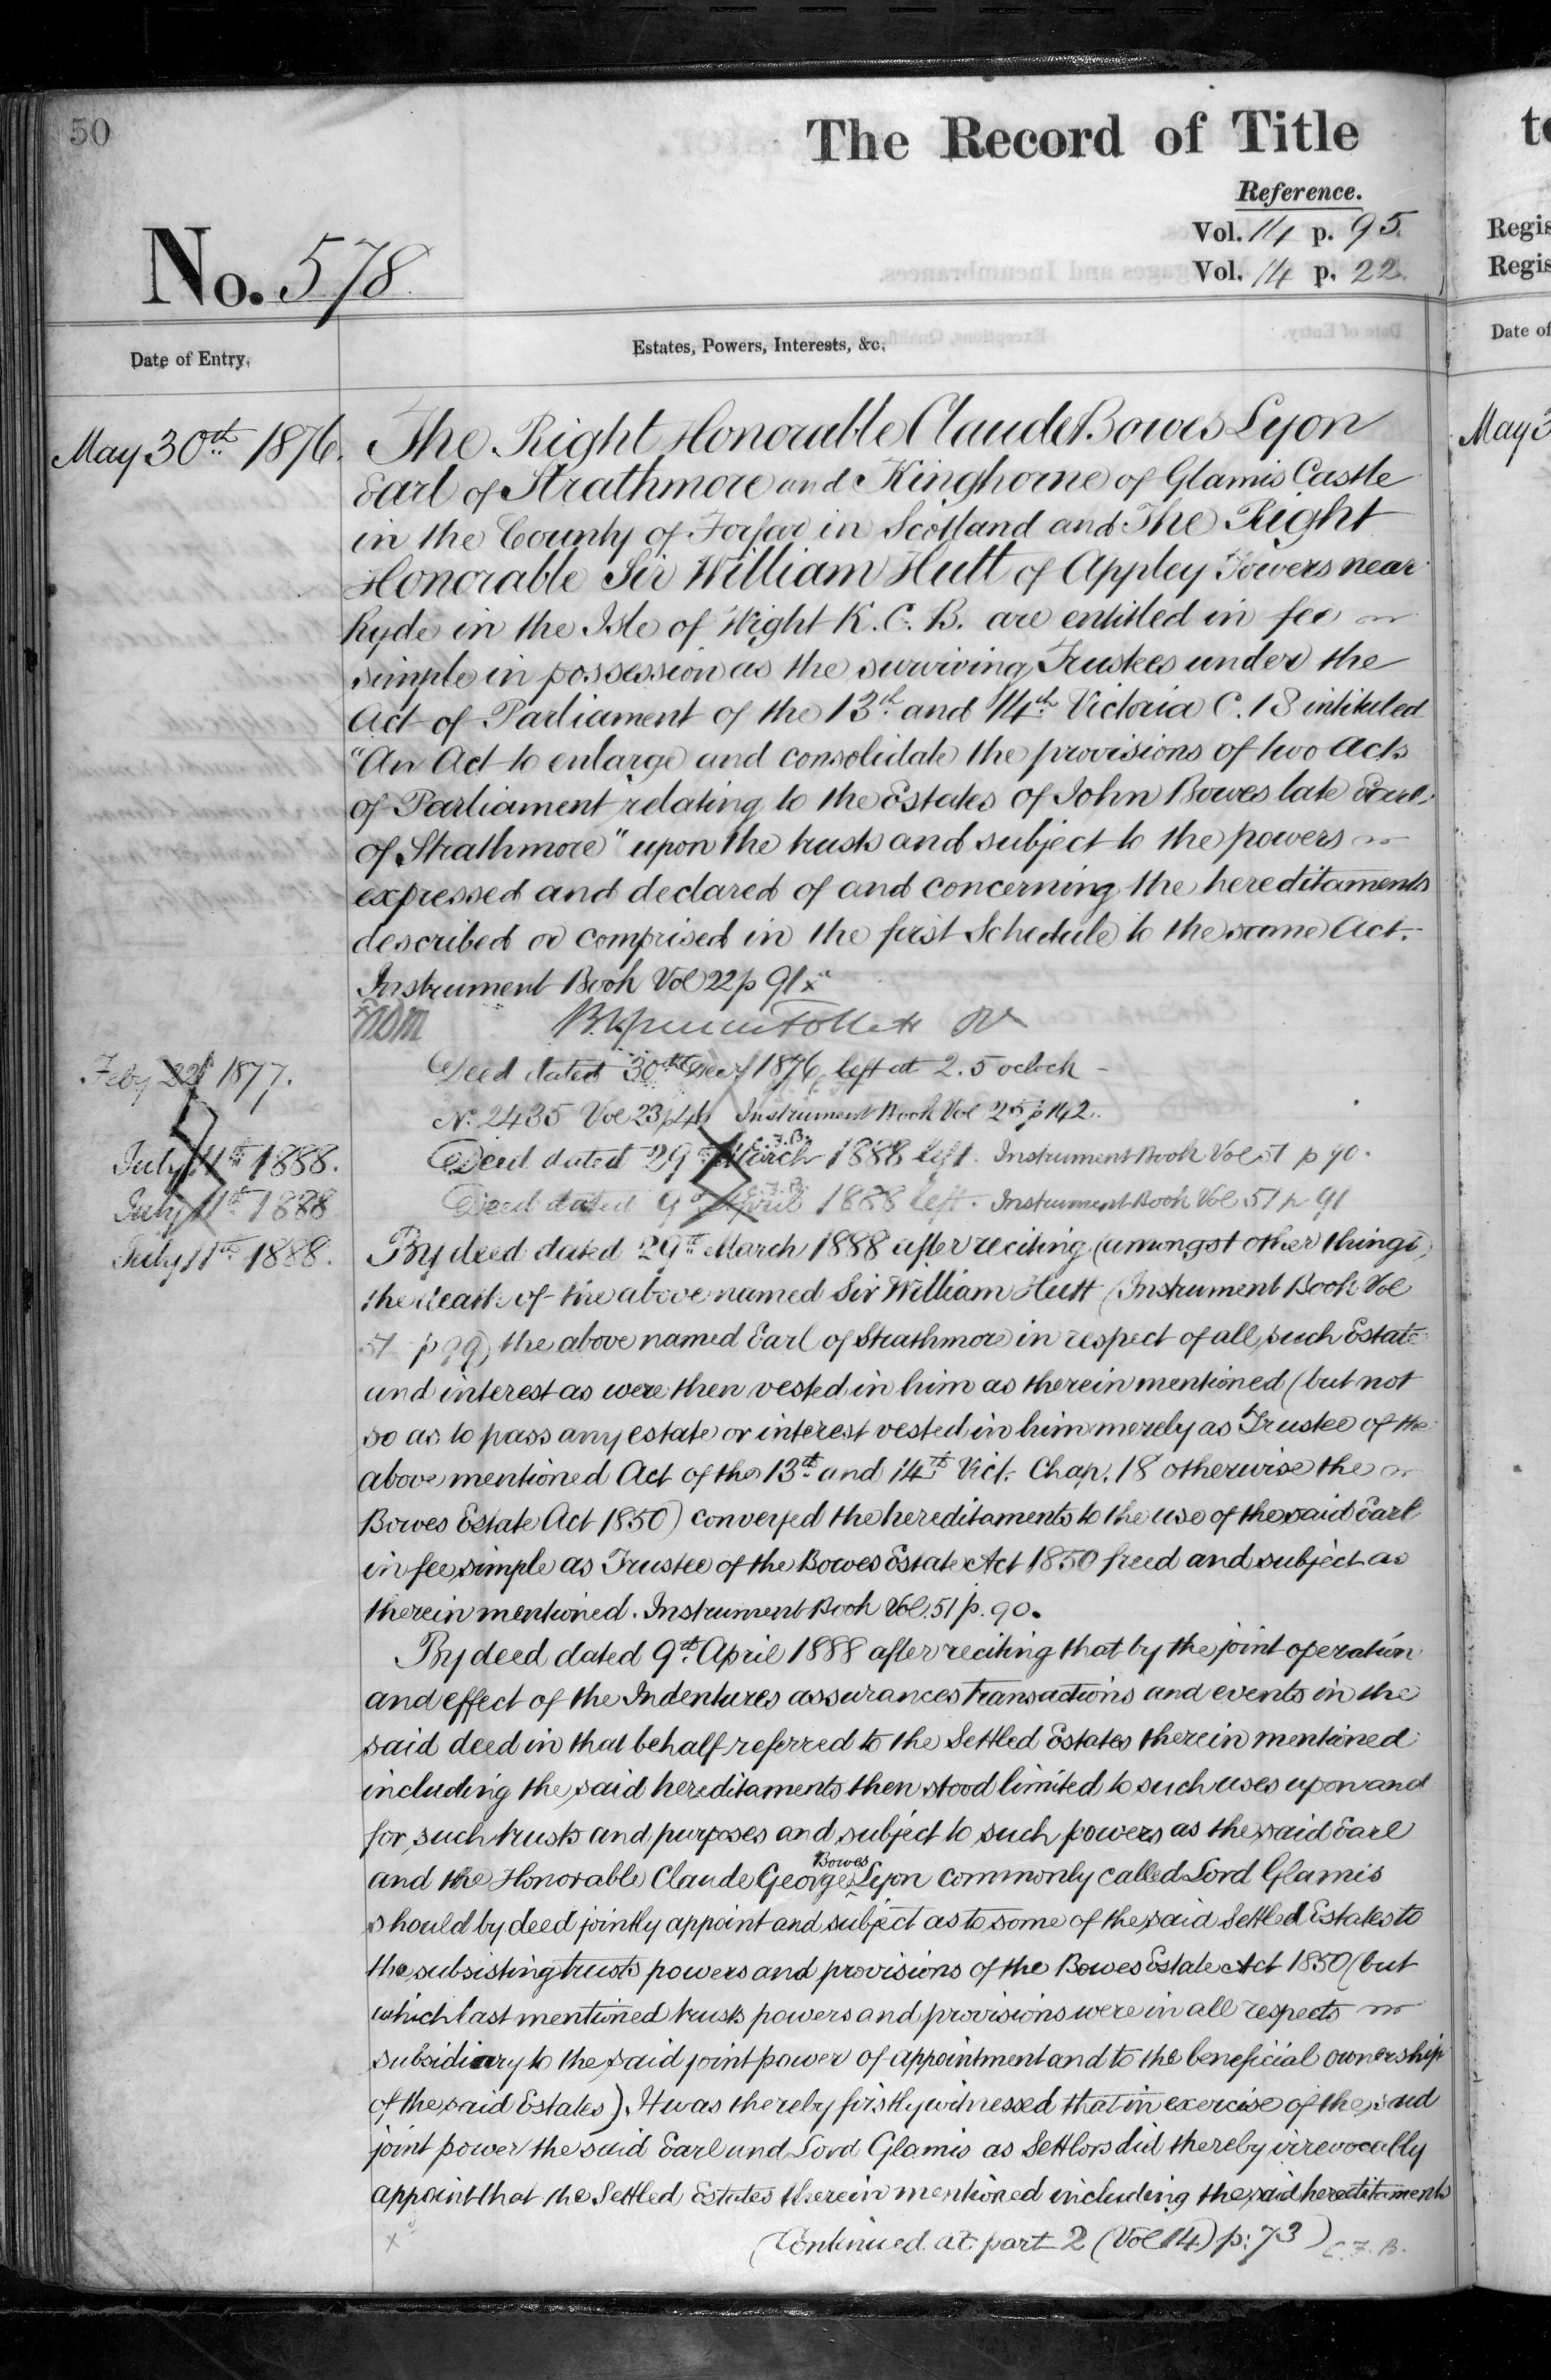 50
The Record of Title
Reference.
Vol. 14 p. 95.
Vol. 14 p. 22.
No. 578
Date of Entry.
Estates, Powers, Interests, &c.
May 30th 1876.
The Right Honorable Claude Bowes Lyon
Earl of Strathmore and Kinghorne of Glamis Castle
in the County of Forfar in Scotland and The Right
Honorable Sir William Hutt of Appley Towers near
Ryde in the Isle of Wight K.C.B. are entitled in fee
simple in possession as the surviving Trustees under the
Act of Parliament of the 13th and 14th Victoria C. 18 intituled
"An Act to enlarge and consolidate the provisions of two Acts
of Parliament relating to the Estates of John Bowes late Earl
of Strathmore" upon the trusts and subject to the powers
expressed and declared of and concerning the hereditaments
described or comprised in the first Schedule to the same Act.
Instrument Book Vol 22 p 91 x
Feby 22d 1877.
Deed dated 30th Decr 1876 left at 2.5 oclock
No. 2435 Vol 23 p 44 Instrument Book Vol 25 p 142.
July 11th 1888.
C.F.B.
Deed dated 29th March 1888 left. Instrument Book Vol 51 p 90.
July 11th 1888
C.F.B.
Deed dated 9th April 1888 left. Instrument Book Vol 51 p 91
July 11th 1888.
By deed dated 29th March 1888 after reciting (amongst other things)
the death of the above named Sir William Hutt (Instrument Book Vol
51 p 99) the above named Earl of Strathmore in respect of all such Estate
and interest as were then vested in him as therein mentioned (but not
so as to pass any estate or interest vested in him merely as Trustee of the
above mentioned Act of the 13th and 14th Vict. Chap. 18 otherwise the
Bowes Estate Act 1850) conveyed the hereditaments to the use of the said Earl
in fee simple as Trustee of the Bowes Estate Act 1850 freed and subject as
therein mentioned. Instrument Book Vol. 51 p. 90.
By deed dated 9th April 1888 after reciting that by the joint operation
and effect of the Indentures assurances transactions and events in the
said deed in that behalf referred to the Settled Estates therein mentioned
including the said hereditaments then stood limited to such uses upon and
for such trusts and purposes and subject to such powers as the said Earl
and the Honorable Claude George Bowes Lyon commonly called Lord Glamis
should by deed jointly appoint and subject as to some of the said Settled Estates to
the subsisting trusts powers and provisions of the Bowes Estate Act 1850 (but
which last mentioned trusts powers and provisions were in all respects
subsidiary to the said joint power of appointment and to the beneficial ownership
of the said Estates) It was thereby firstly witnessed that in exercise of the said
joint power the said Earl and Lord Glamis as Settlors did thereby irrevocably
appoint that the Settled Estates therein mentioned including the said hereditaments
(Continued at part 2 (Vol 14) p: 73) C.F.B.
x
to
Regis
Regis
Date of
May 3